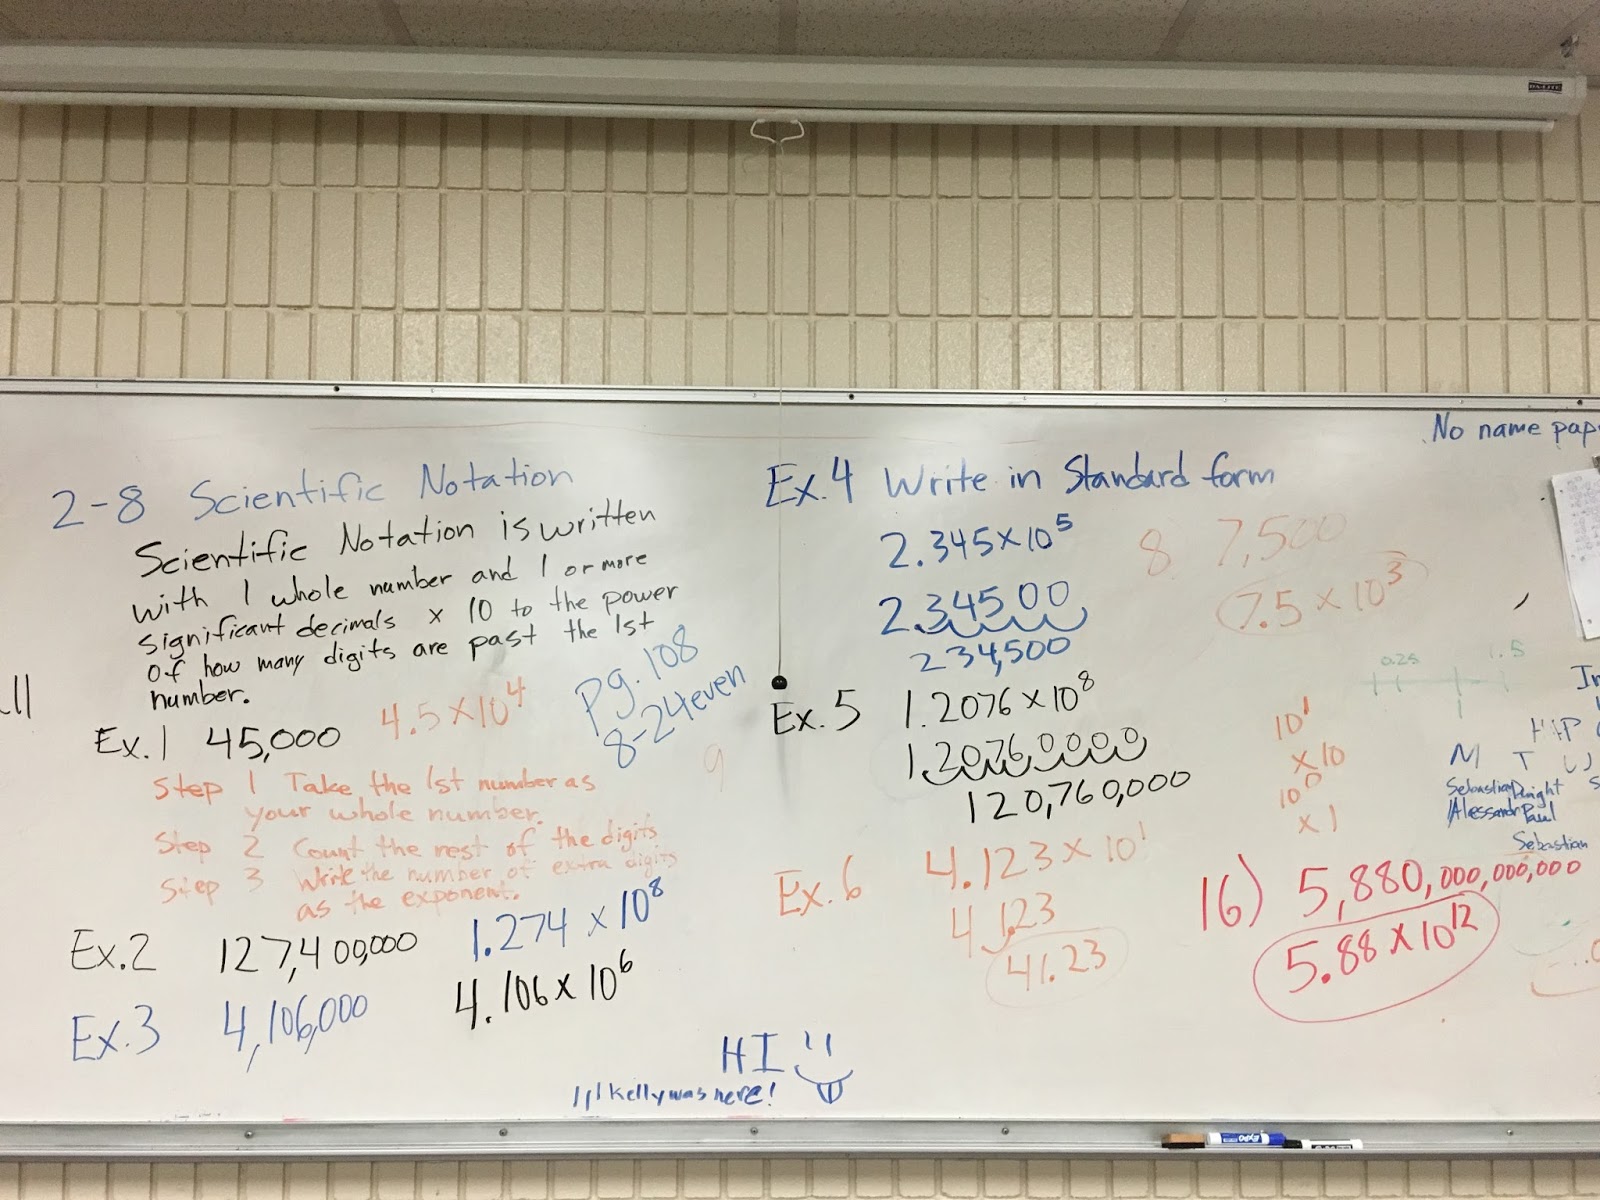 DA-LITE
No name pap
2-8 Scientific Notation
Scientific Notation is written
with 1 whole number and 1 or more
significant decimals x 10 to the power
of how many digits are past the 1st
number.
pg. 108
8-24 even
Ex.1 45,000 4.5 x 10⁴
Step 1 Take the 1st number as
your whole number.
Step 2 Count the rest of the digits
Step 3 Write the number of extra digits
as the exponent.
Ex.2 127,400,000 1.274 x 10⁸
Ex.3 4,106,000 4.106 x 10⁶
ll
9
Ex.4 Write in Standard form
2.345 x 10⁵
2.34500
234,500
Ex.5 1.2076 x 10⁸
1.20760000
120,760,000
Ex.6 4.123 x 10¹
4.123
41.23
8 7,500
7.5 x 10³
0.25 1.5
10¹
x 10
10⁰
x 1
M T W
Sebastian Dwight
Alessandr Paul
Sebastian
16) 5,880,000,000,000
5.88 x 10¹²
HI
Kelly was here!
EXPO